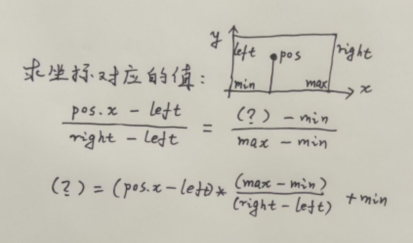 y
left
pos
right
min
max
x
求坐标对应的值:
pos.x - left / right - left = (?) - min / max - min
(?) = (pos.x - left) * (max - min) / (right - left) + min